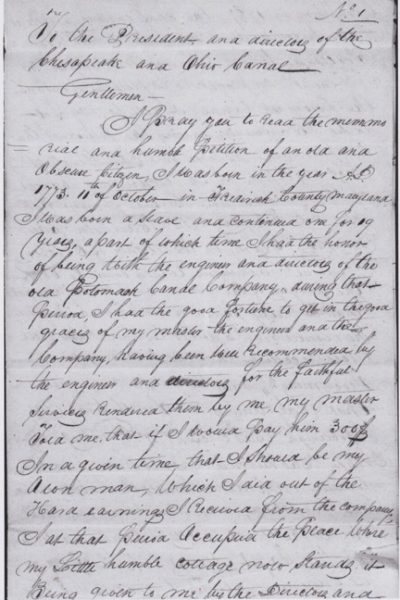 No 1
To the President and directors of the
Chesapeake and Ohio Canal
Gentlemen
I Pray you to read the memmo
rial and humbl Petition of an old and
Obscure Citizen, I was born in the year AD
1773. 11th of October in Fredirick County maryland
I was born a Slave and continued one for 29
years, a part of which time I had the honor
of being with the engineer and directors of the
old Potomack Canal Company, during that
Period, I had the good fortune to get in the good
graces of my master the engineers and the
Company, having been well recommended by
the engineer and directors for the faithful
Services rendered them by me, my master
Told me, that if I would pay him 300$
In a given time, that I should be my
own man, Which I did out of the
Hard earnings I Received from the company,
I at that Period Occupied the Place where
my Little humble cottage now Stands it
Being given to me by the Directors and